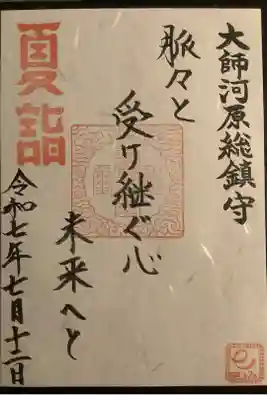 大師河原総鎮守
脈々と
受け継ぐ心
未来へと
夏詣
令和七年七月十二日